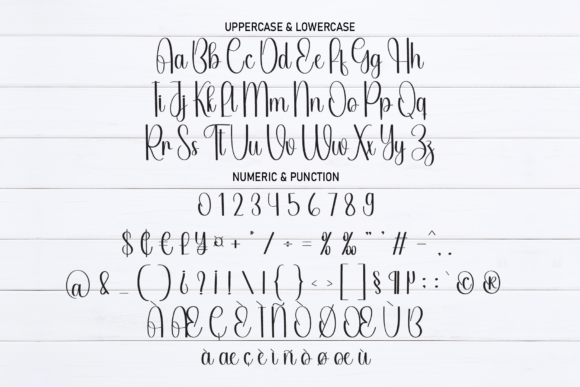 UPPERCASE & LOWERCASE
Aa Bb Cc Dd Ee Ff Gg Hh
Ii Jj Kk Ll Mm Nn Oo Pp Qq
Rr Ss Tt Uu Vv Ww Xx Yy Zz
NUMERIC & PUNCTION
0 1 2 3 4 5 6 7 8 9
$ ₵ € £ ¥ ¤ + * / ÷ = % ‰ " ' # - ^ . .
@ & _ ( ) ¿ ? ¡ ! \ | { } < > [ ] § ¶ µ : : ` © ®
À Æ Ç È Ì Ñ Ò Ø Œ Ù ß
à æ ç è ì ñ ò ø œ ù